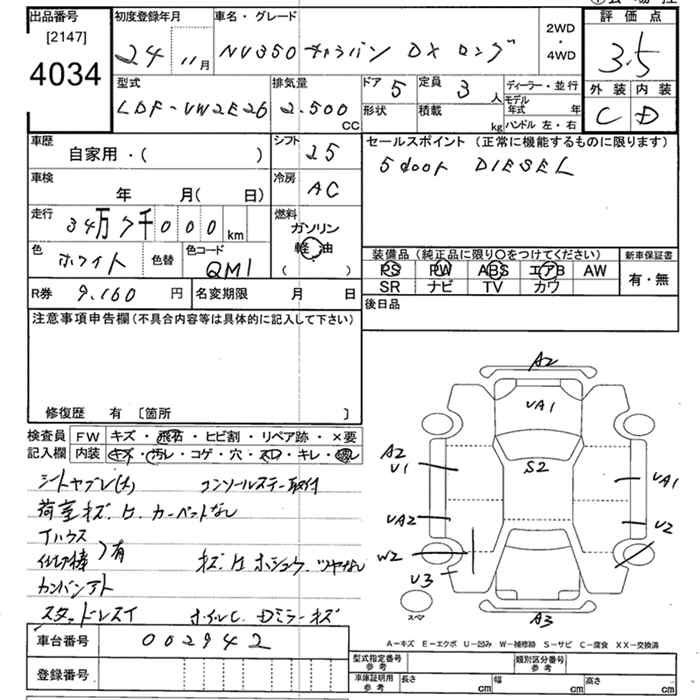 出品番号 初度登録年月 車名・グレード 2WD・4WD 評価点
[2147] 4034 24 11月 NV350 キャラバン DX ロング 3.5
型式 排気量 ドア 5 定員 3人 ディーラー・並行 外装 内装
LDF-VW2E26 2.500 CC 形状 積載 kg モデル年式 年 C D
ハンドル 左・右
車歴 自家用・( ) シフト 25 セールスポイント (正常に機能するものに限ります)
5door DIESEL
車検 年 月( 日) 冷房 AC
走行 34万7千000km 燃料 ガソリン 軽油 ( )
色 ホワイト 色替 色コード QM1
装備品 (純正品に限り○をつけてください) 新車保証書
PS PW ABS エアB AW 有・無
SR ナビ TV カワ
R券 9.160円 名変期限 月 日 後日品
注意事項申告欄(不具合内容等は具体的に記入して下さい)
修復歴 有 [箇所 ]
検査員 FW キズ・飛石・ヒビ割・リペア跡・×要
記入欄 内装 キズ・汚レ・コゲ・穴・スレ・キレ・
シートヤブレ(大) コンソールステー取付
荷室キズ. カーペットなし
有 キズ. ホシュウ. ツヤなし
スタッドレスイ ホイルC. Dミラーキズ
車台番号 002942
登録番号
A2
VA1
A2
U1 S2 VA1
VA2 U2
W2
U3
スペア A3
A-キズ E-エクボ U-凹み W-補修跡 S-サビ C-腐食 XX-交換済
型式指定番号 参考 類別区分番号 参考
車庫証明用 参考 長さ cm 幅 cm 高さ cm